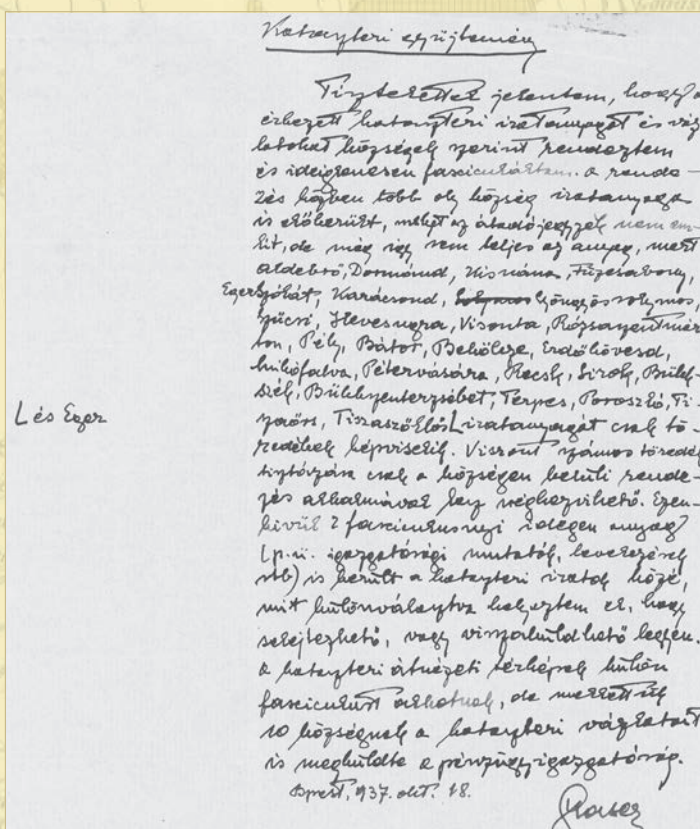 Kataszteri gyűjtemény
Tisztelettel jelentem, hogy a
érkezett kataszteri iratanyagot és váz
latokat községek szerint rendeztem
és ideiglenesen fasciculáltam. A rende-
zés közben több oly község iratanyaga
is előkerült, melyet az átadójegyzék nem em-
lít, de még így sem teljes az anyag, mert
Aldebrő, Dormánd, Kisnána, Füzesabony,
Egerbaktát, Karácsond, Gyöngyössolymos,
Szücsi, Hevesugra, Visonta, Rózsaszentmár
ton, Pély, Bátor, Bekölce, Erdőkövesd,
Mikófalva, Pétervására, Recsk, Sirok, Bükk-
szék, Bükkszenterzsébet, Terpes, Poroszló, Ti-
L és Eger
szaörs, Tiszaszőllős L iratanyagát csak tö-
redékek képviselik. Viszont számos töredék
tisztázása csak a községen belüli rende-
zés alkalmával lesz véghezvihető. Ezen-
kívül 2 fasciculusnyi idegen anyag
(p.ü. igazgatósági mutatók, levelezések
stb) is került a kataszteri iratok közé,
mit különválasztva helyeztem el, hogy
selejtezhető, vagy visszaküldhető legyen.
A kataszteri átnézeti térképek külön
fasciculust alkotnak, de mellettük
10 községnek a kataszteri vázlatait
is megküldte a pénzügyigazgatóság.
Bpest, 937. okt. 18.